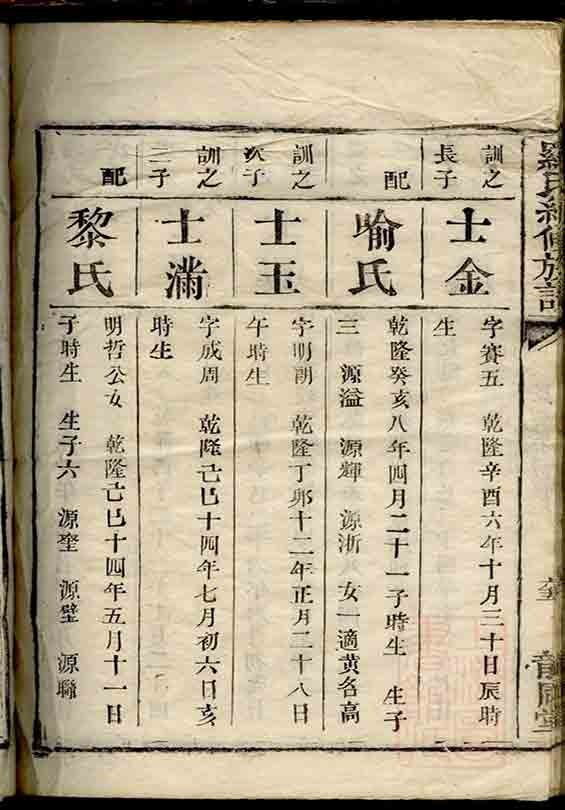 羅氏續修族譜
訓之
長子
士金
字賽五 乾隆辛酉六年十月三十日辰時
生
配
喻氏
乾隆癸亥八年四月二十一子時生 生子
三 源溢 源輝 源浙 女一適黄名高
訓之
次子
士玉
字明朗 乾隆丁卯十二年正月二十八日
午時生
訓之
三子
士滿
字成周 乾隆己巳十四年七月初六日亥
時生
配
黎氏
明哲公女 乾隆己巳十四年五月十一日
子時生 生子六 源奎 源壁 源聯